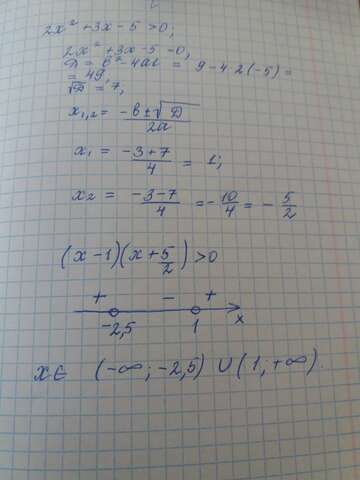 2x² + 3x - 5 > 0;
2x² + 3x - 5 = 0,
D = b² - 4ac = 9 - 4·2(-5) =
= 49,
√D = 7,
x₁,₂ = (-b ± √D)/2a
x₁ = (-3+7)/4 = 1;
x₂ = (-3-7)/4 = -10/4 = -5/2
(x - 1)(x + 5/2) > 0
+ - +
-2,5 1 x
x ∈ (-∞; -2,5) ∪ (1; +∞).